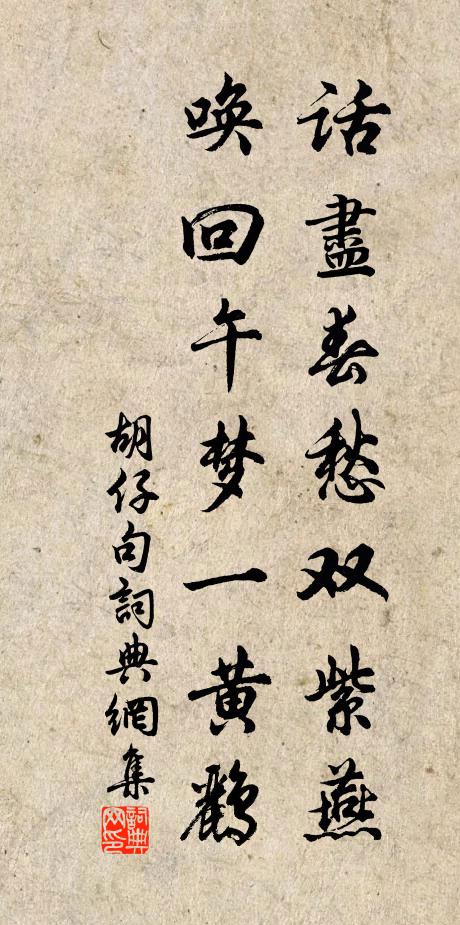 話盡春愁双紫燕
唤回午梦一黄鹂
胡仔句詞典網集
詞典網印